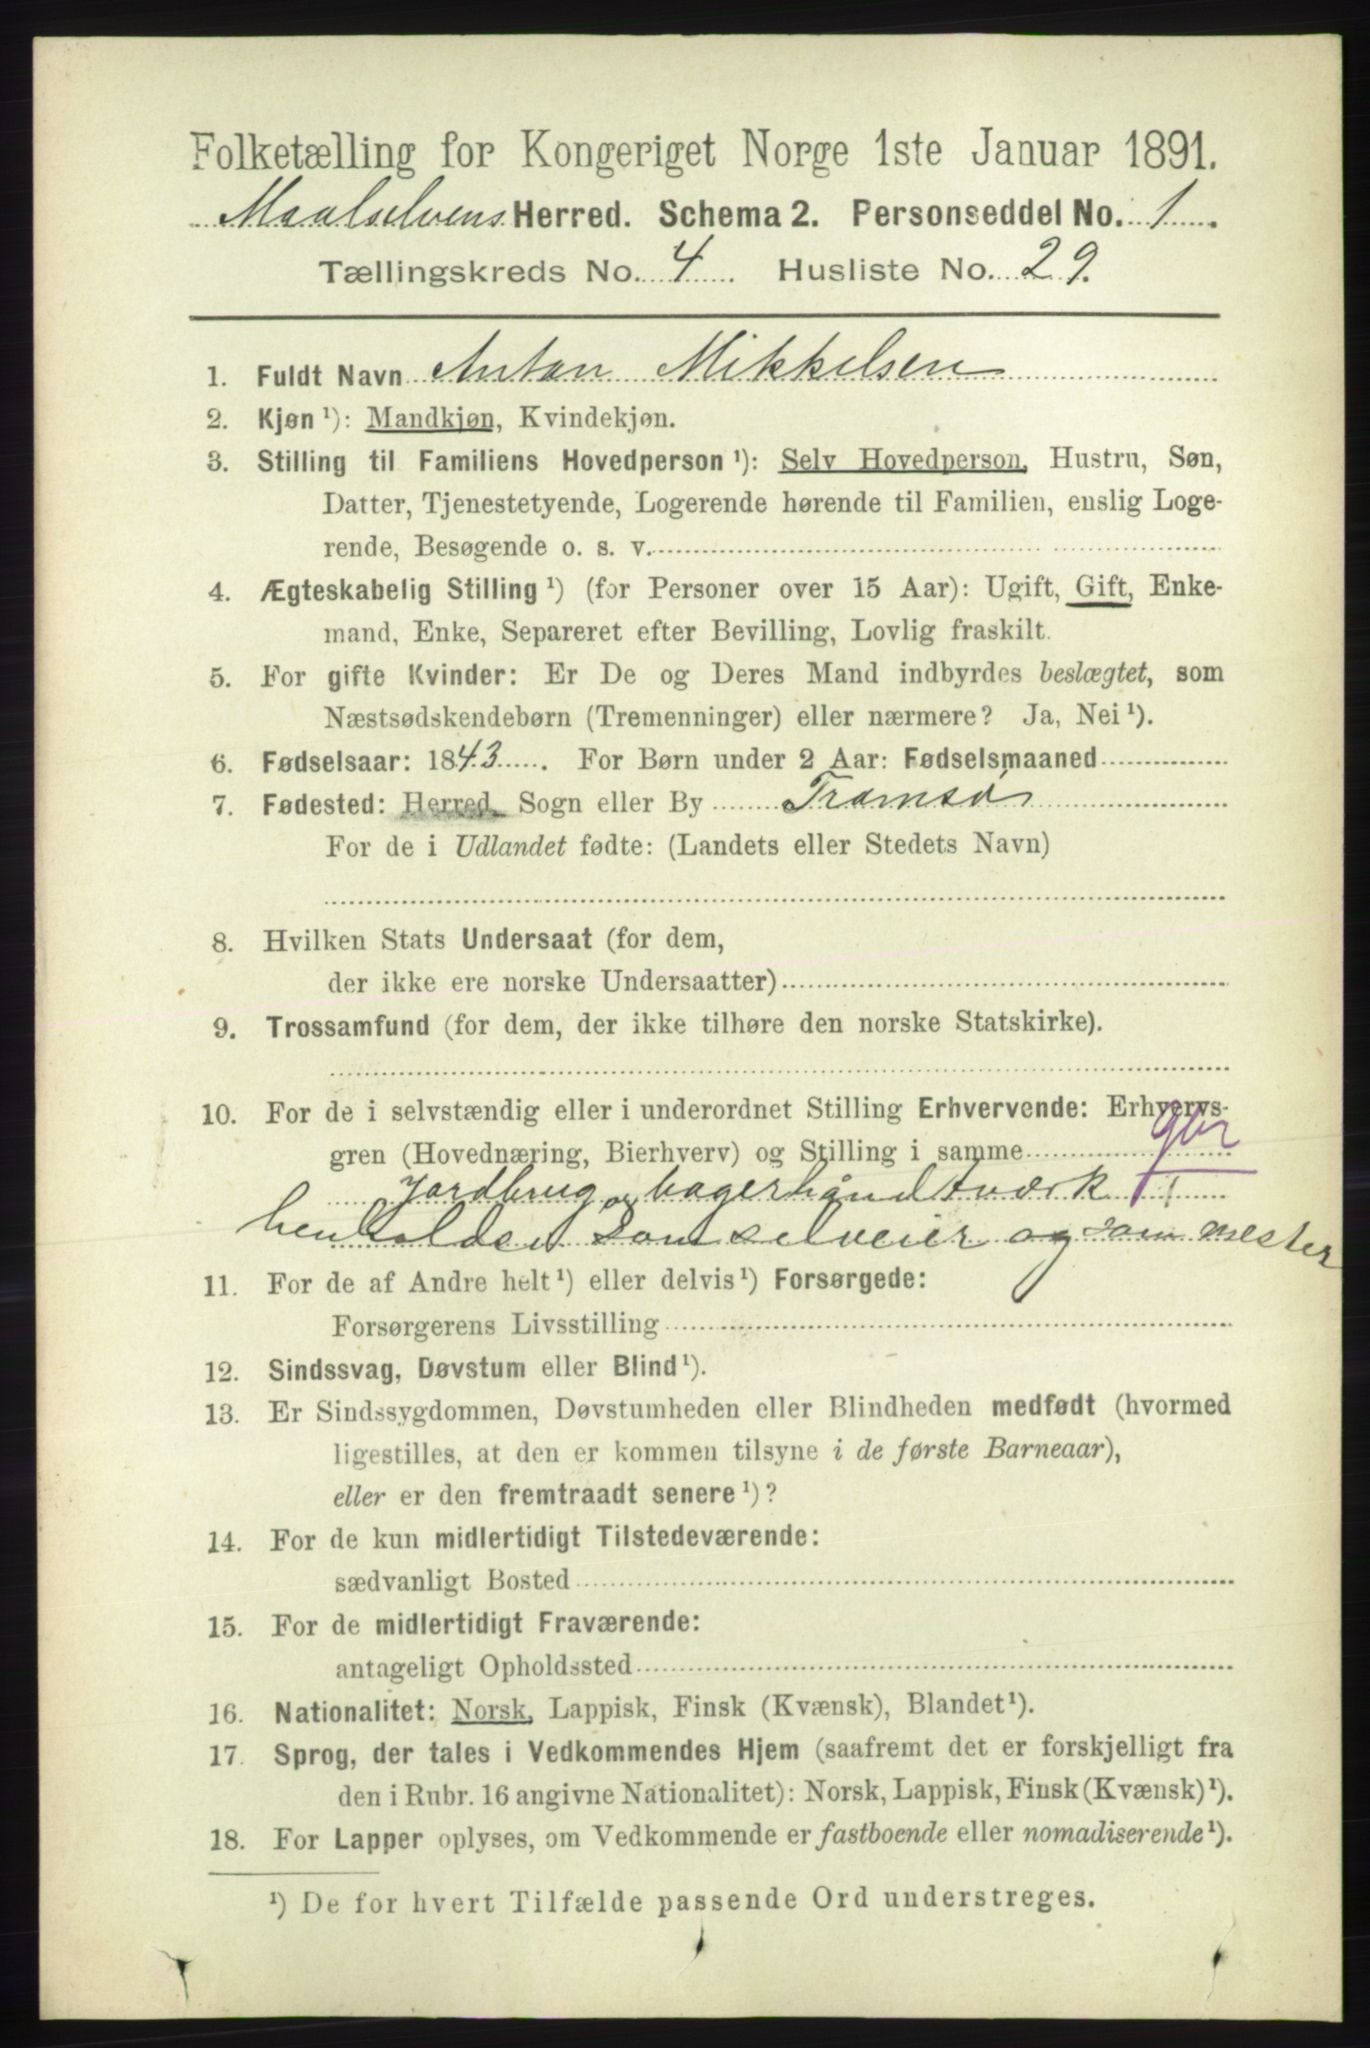 Folketælling for Kongeriget Norge 1ste Januar 1891.
Maalselvens Herred. Schema 2. Personseddel No. 1.
Tællingskreds No. 4 Husliste No. 29.
1. Fuldt Navn Anton Mikkelsen
2. Kjøn ¹): Mandkjøn, Kvindekjøn.
3. Stilling til Familiens Hovedperson ¹): Selv Hovedperson, Hustru, Søn,
Datter, Tjenestetyende, Logerende hørende til Familien, enslig Loge-
rende, Besøgende o. s. v.
4. Ægteskabelig Stilling ¹) (for Personer over 15 Aar): Ugift, Gift, Enke-
mand, Enke, Separeret efter Bevilling, Lovlig fraskilt.
5. For gifte Kvinder: Er De og Deres Mand indbyrdes beslægtet, som
Næstsødskendebørn (Tremenninger) eller nærmere? Ja, Nei ¹).
6. Fødselsaar: 1843. For Børn under 2 Aar: Fødselsmaaned
7. Fødested: Herred, Sogn eller By Tromsø
For de i Udlandet fødte: (Landets eller Stedets Navn)
8. Hvilken Stats Undersaat (for dem,
der ikke ere norske Undersaatter)
9. Trossamfund (for dem, der ikke tilhøre den norske Statskirke).
10. For de i selvstændig eller i underordnet Stilling Erhvervende: Erhvervs-
gren (Hovednæring, Bierhverv) og Stilling i samme
Jordbrug og bagerhåndtværk
henholdsv som selveier og som mester
11. For de af Andre helt ¹) eller delvis ¹) Forsørgede:
Forsørgerens Livsstilling
12. Sindssvag, Døvstum eller Blind ¹).
13. Er Sindssygdommen, Døvstumheden eller Blindheden medfødt (hvormed
ligestilles, at den er kommen tilsyne i de første Barneaar),
eller er den fremtraadt senere ¹)?
14. For de kun midlertidigt Tilstedeværende:
sædvanligt Bosted
15. For de midlertidigt Fraværende:
antageligt Opholdssted
16. Nationalitet: Norsk, Lappisk, Finsk (Kvænsk), Blandet ¹).
17. Sprog, der tales i Vedkommendes Hjem (saafremt det er forskjelligt fra
den i Rubr. 16 angivne Nationalitet): Norsk, Lappisk, Finsk (Kvænsk) ¹).
18. For Lapper oplyses, om Vedkommende er fastboende eller nomadiserende ¹).
¹) De for hvert Tilfælde passende Ord understreges.